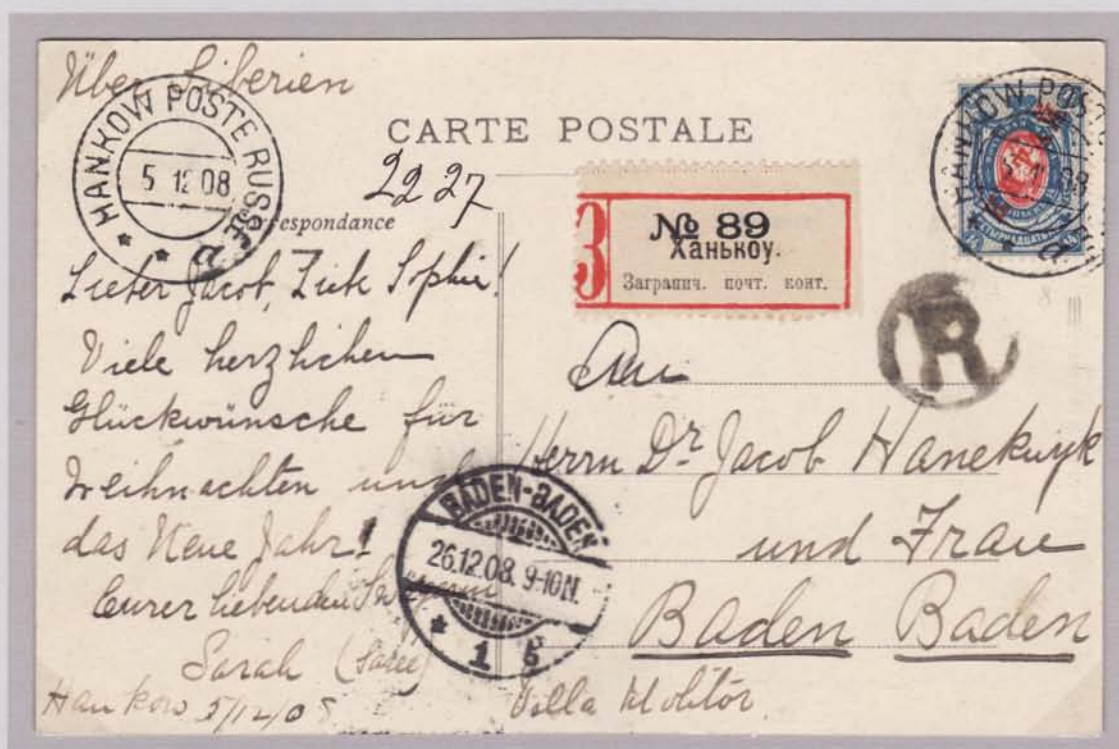 Über Siberien
HANKOW POSTE RUSSE
5 12 08
a
CARTE POSTALE
2227
Correspondance
№ 89
Ханькоу.
Загранич. почт. конт.
HANKOW POSTE
R
Lieber Jacob, Liebe Sophie!
Viele herzlichen
Glückwünsche für
Weihnachten und
das Neue Jahr!
Eurer liebenden
Sarah
Hankow 5/12/08
An
Herrn Dr Jacob Hanekuyk
und Frau
Baden Baden
Villa Molitor
BADEN-BADEN
26.12.08. 9-10N.
* 1 b